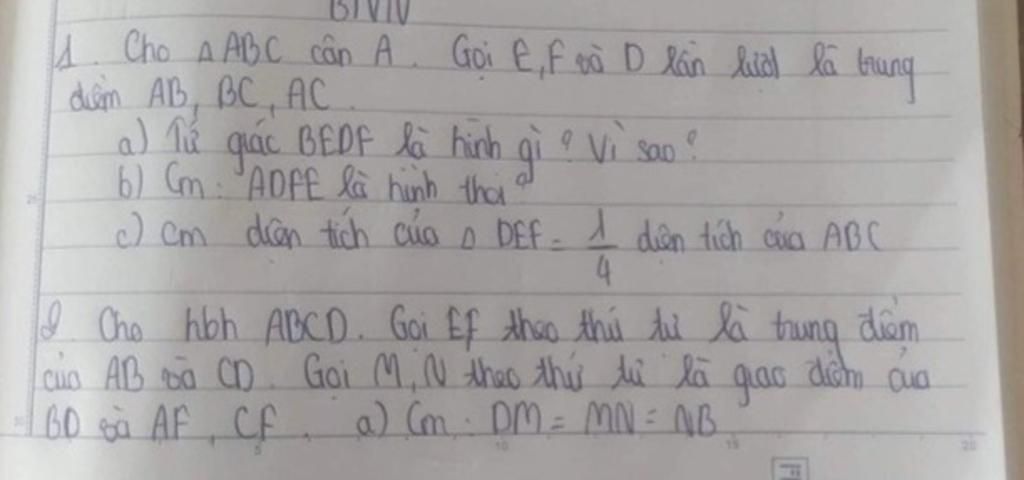 BTVN
1. Cho △ABC cân A. Gọi E,F và D lần lượt là trung
điểm AB, BC, AC.
a) Tứ giác BEDF là hình gì? Vì sao?
b) Cm: ADFE là hình thoi
c) Cm diện tích của △ DEF = 1/4 diện tích của ABC
2 Cho hbh ABCD. Gọi EF theo thứ tự là trung điểm
của AB và CD. Gọi M,N theo thứ tự là giao điểm của
BD và AF, CF. a) Cm: DM = MN = NB